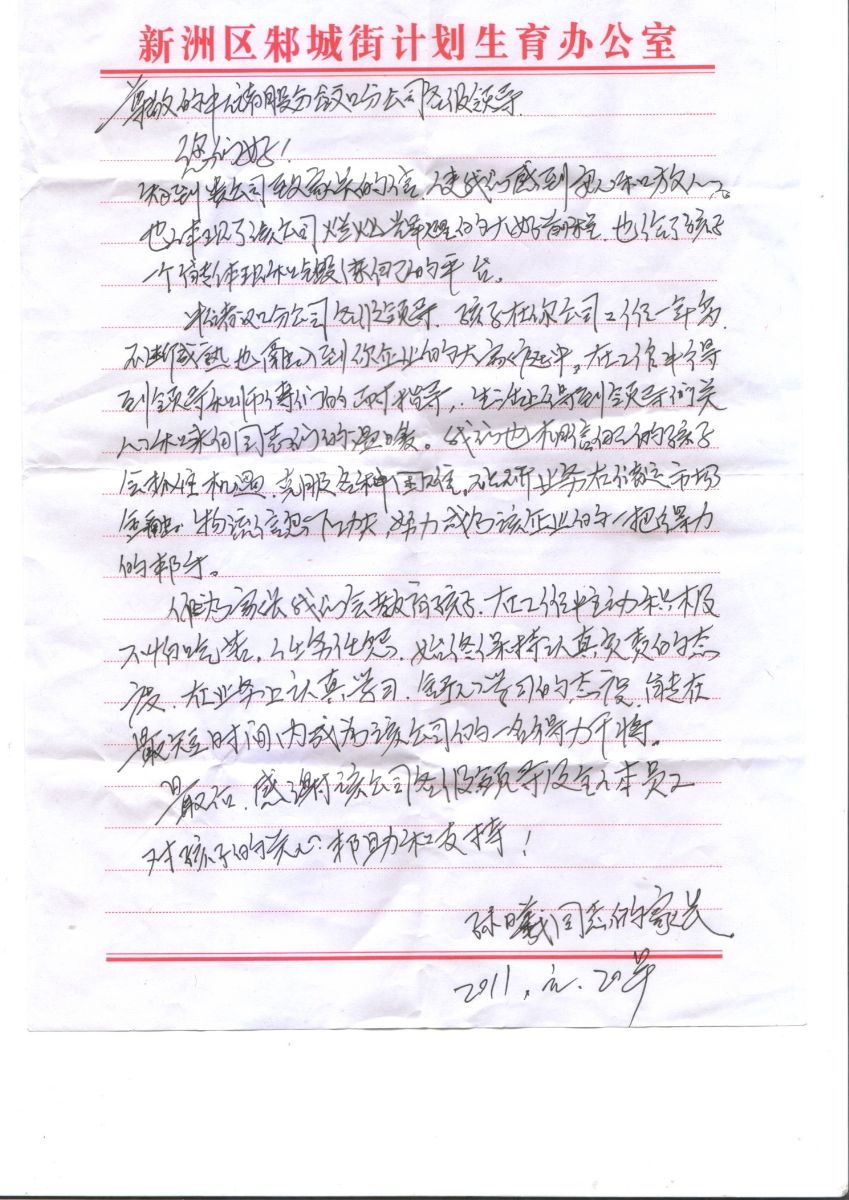 新洲区邾城街计划生育办公室
尊敬的中储股份汉口分公司各级领导
您们好！
接到贵公司致家长的信，使我们感到安心和放心。
也体现了该公司灿烂辉煌的大好前程，也给了孩子
一个能体现和锻炼自己的平台。
汉口分公司各级领导，孩子在你公司工作一年多，
不断成熟也融入到你企业的大家庭中。在工作中得
到领导和师傅们的正确指导，生活上得到领导们关
心和来自同志们的温暖。我们也相信自己的孩子
会抓住机遇，克服各种困难，在业务
金融、物流下功夫，努力成为该企业的一把得力
的帮手。
作为家长我们会教育孩子，在工作中主动积极
不怕吃苦，任劳任怨，始终保持认真负责的态
度，在业务上认真学习，学习的态度，能在
最短时间内成为该公司的一名得力干将。
最后，感谢该公司各级领导及全体员工
对孩子的关心帮助和支持！
孙曦同志的家长
2011.元.20草